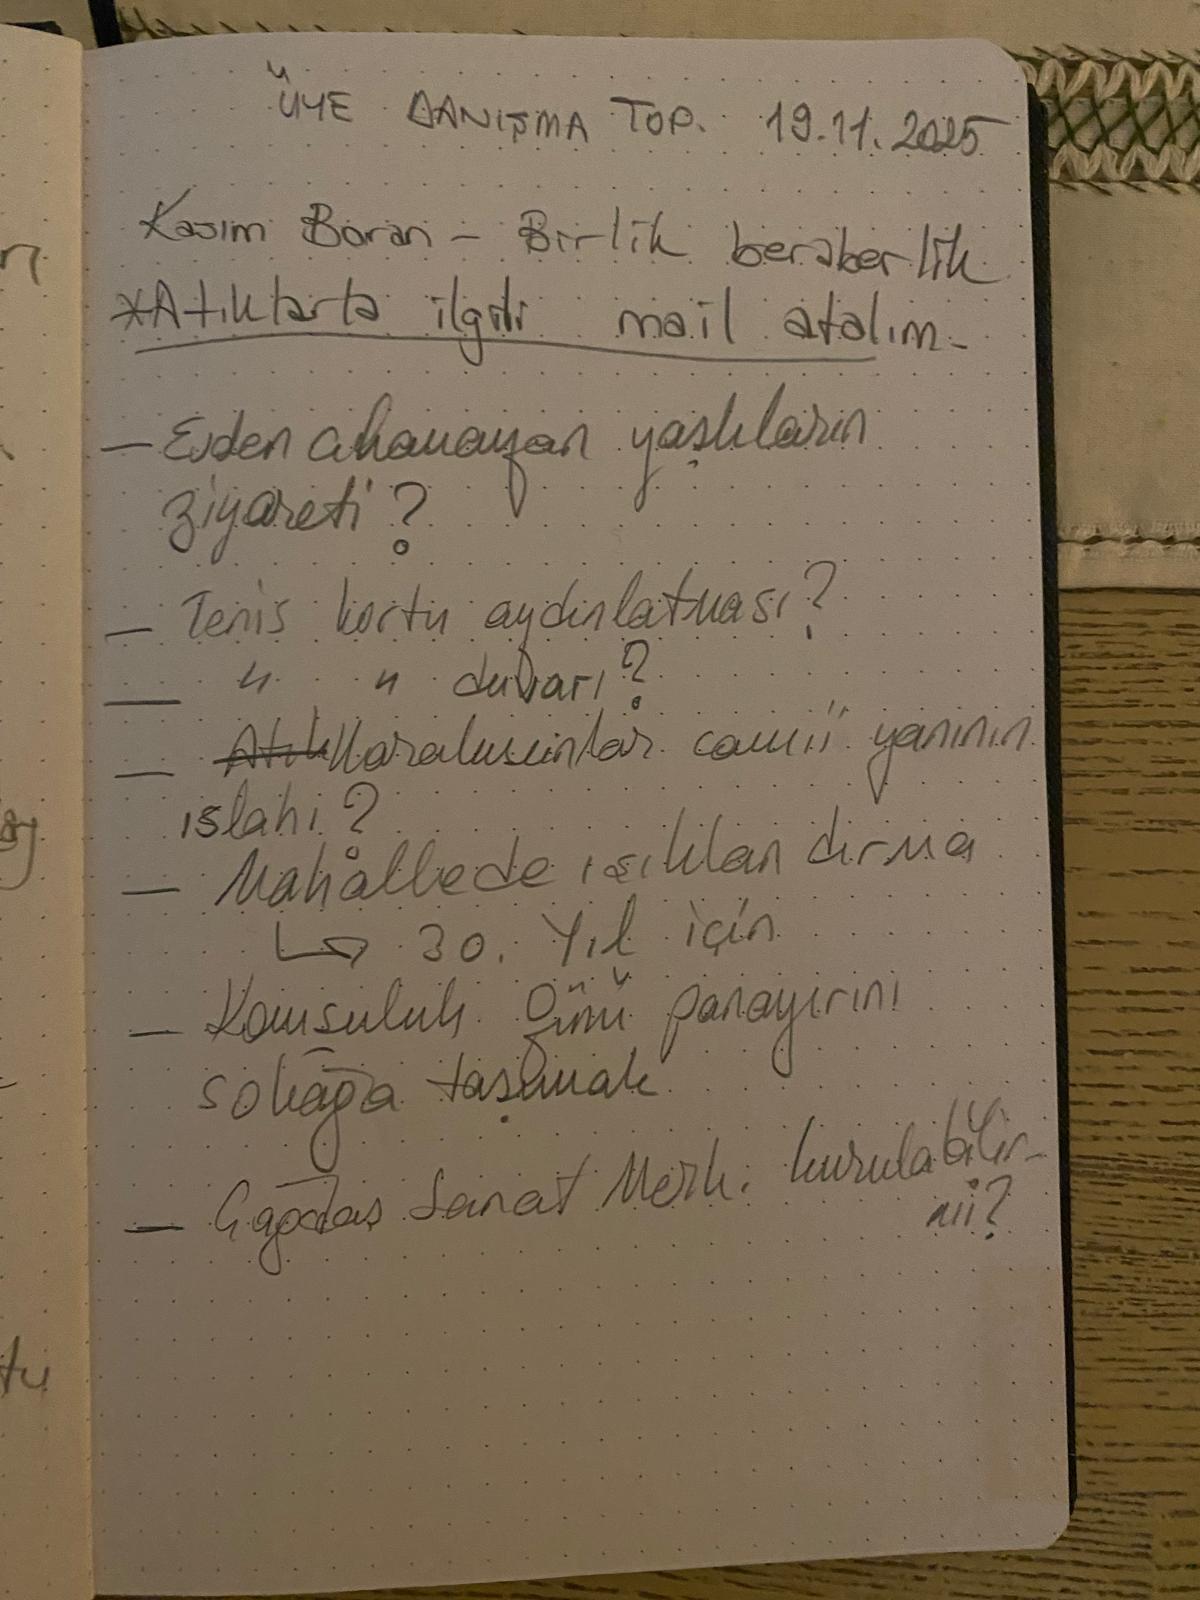 ÜYE DANIŞMA TOP. 19.11.2025
Kasım Boran - Birlik beraberlik
*Atıklarla ilgili mail atalım-
- Evden çıkamayan yaşlıların
ziyareti?
- Tenis kortu aydınlatması?
- " " duvarı?
- Atık Karakusunlar camii yanının
ıslahı?
- Mahallede ışıklandırma
↳ 30. Yıl için
- Komşuluk Günü panayırını
sokağa taşımak
- Çağdaş Sanat Merk. kurulabilir
mi?